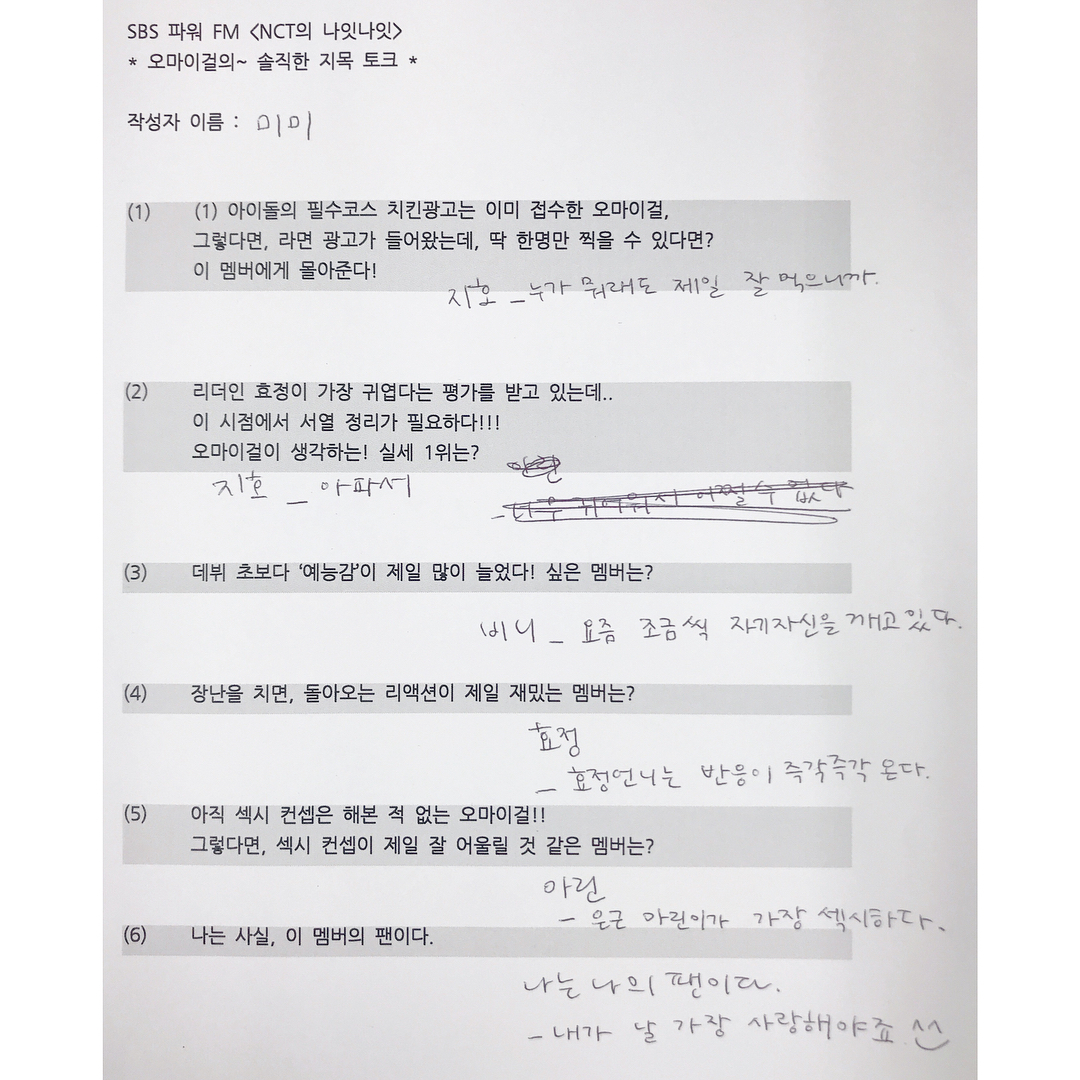 SBS 파워 FM <NCT의 나잇나잇>
* 오마이걸의~ 솔직한 지목 토크 *
작성자 이름 : 미미
(1) (1) 아이돌의 필수코스 치킨광고는 이미 접수한 오마이걸,
그렇다면, 라면 광고가 들어왔는데, 딱 한명만 찍을 수 있다면?
이 멤버에게 몰아준다!
지호 _ 누가 뭐래도 제일 잘 먹으니까.
(2) 리더인 효정이 가장 귀엽다는 평가를 받고 있는데..
이 시점에서 서열 정리가 필요하다!!!
오마이걸이 생각하는! 실세 1위는?
지호 _ 아파서
_ 너무 귀여워서 어쩔 수 없다
(3) 데뷔 초보다 ‘예능감’이 제일 많이 늘었다! 싶은 멤버는?
비니 _ 요즘 조금씩 자기자신을 깨고있다.
(4) 장난을 치면, 돌아오는 리액션이 제일 재밌는 멤버는?
효정
_ 효정언니는 반응이 즉각즉각 온다.
(5) 아직 섹시 컨셉은 해본 적 없는 오마이걸!!
그렇다면, 섹시 컨셉이 제일 잘 어울릴 것 같은 멤버는?
아린
- 은근 아린이가 가장 섹시하다.
(6) 나는 사실, 이 멤버의 팬이다.
나는 나의 팬이다.
- 내가 날 가장 사랑해야죠